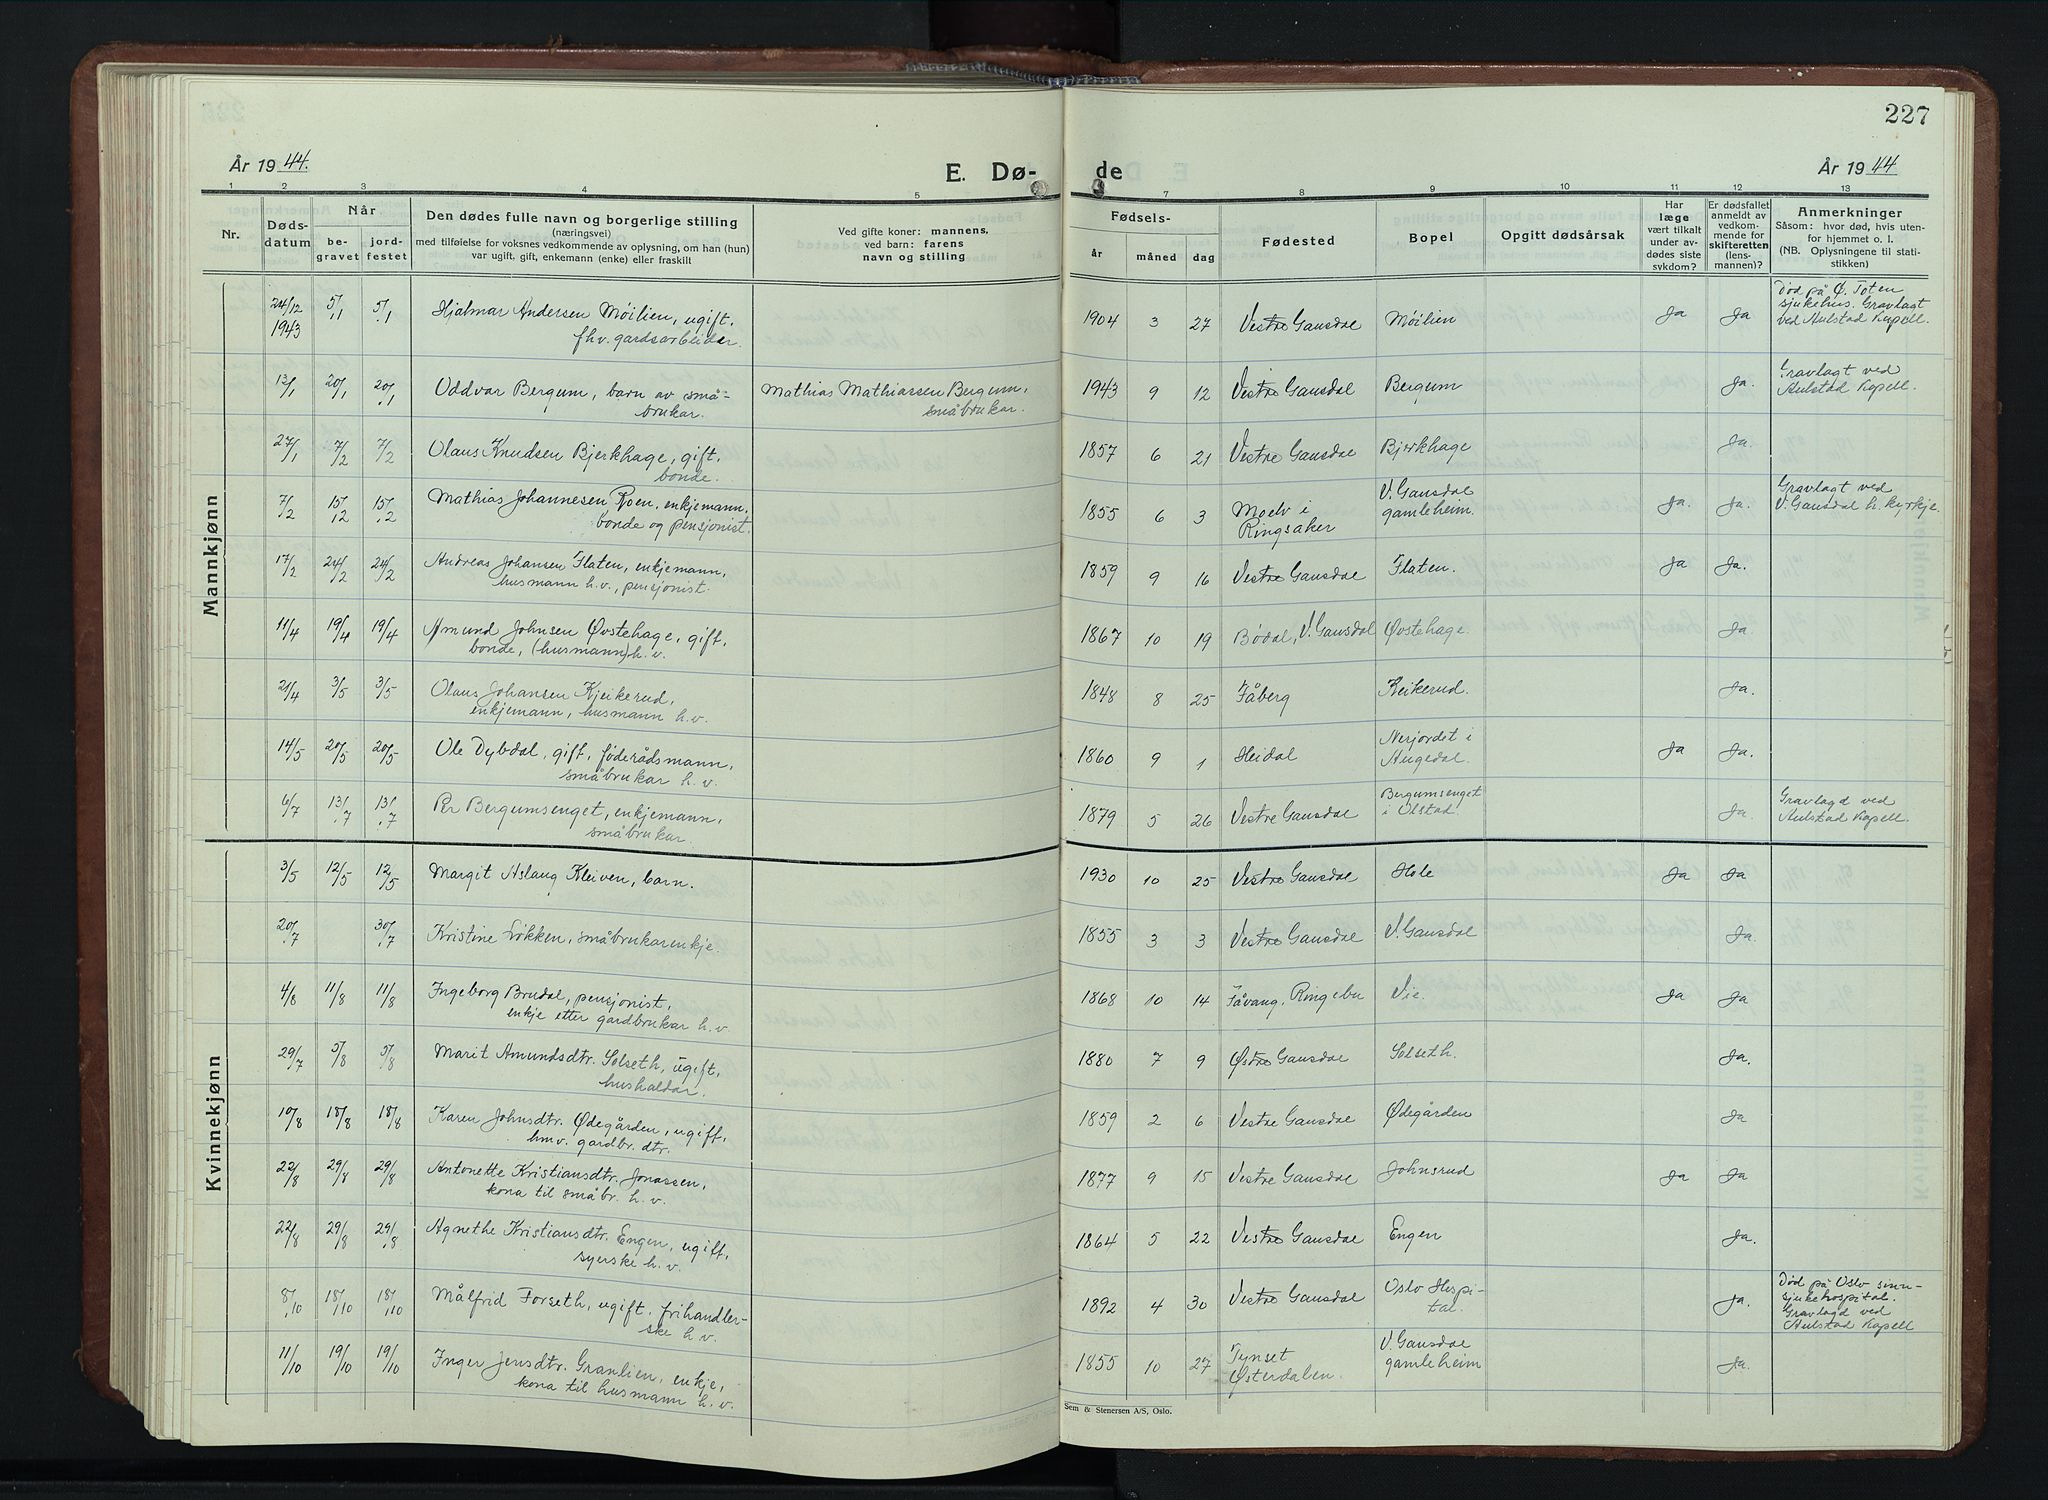 227
År 1944.
E. Dø-
de
År 1944
1 2 3 4 5 7 8 9 10 11 12 13
Nr.
Døds-
datum
Når
be-
gravet
jord-
festet
Den dødes fulle navn og borgerlige stilling
(næringsvei)
med tilføielse for voksnes vedkommende av oplysning, om han (hun)
var ugift, gift, enkemann (enke) eller fraskilt
Ved gifte koner: mannens,
ved barn: farens
navn og stilling
Fødsels-
år måned dag
Fødested
Bopel
Opgitt dødsårsak
Har
læge
vært tilkalt
under av-
dødes siste
sykdom?
Er dødsfallet
anmeldt av
vedkom-
mende for
skifteretten
(lens-
mannen)?
Anmerkninger
Såsom: hvor død, hvis uten-
for hjemmet o. l.
(NB. Oplysningene til stati-
stikken)
Mannkjønn
24/12 1943 5/1 5/1 Hjalmar Andersen Möilien, ugift,
fhv. gardsarbeider.
1904 3 27 Vestre Gausdal Möilien Ja Ja
Död på Ö. Toten
sjukehus. Gravlagt
ved Aulstad Kapell.
13/1 20/1 20/1 Oddvar Bergum, barn av små-
brukar.
Mathias Mathiassen Bergum,
småbrukar.
1943 9 12 Vestre Gausdal Bergum Ja.
Gravlagt ved
Aulstad Kapell.
27/1 7/2 7/2 Olaus Knudsen Bjerkhage, gift,
bonde.
1857 6 21 Vestre Gausdal Bjerkhage Ja.
7/2 15/2 15/2 Mathias Johannesen Roen, enkjemann,
bonde og pensjonist.
1855 6 3 Moelv i
Ringsaker
V. Gausdal
gamleheim.
Ja. Ja.
Gravlagt ved
V. Gausdal h. kyrkje.
17/2 24/2 24/2 Andreas Johansen Flaten, enkjemann,
husmann h.v., pensjonist.
1859 9 16 Vestre Gausdal Flaten. Ja Ja.
11/4 19/4 19/4 Amund Johnsen Øvstehage, gift,
bonde, (husmann) h.v.
1867 10 19 Bödal, V. Gausdal Øvstehage. Ja
21/4 3/5 3/5 Olaus Johansen Kjeikerud,
enkjemann, husmann h.v.
1848 8 25 Fåberg Keikerud. Ja.
14/5 20/5 20/5 Ole Dybdal, gift, föderådsmann,
småbrukar h.v.
1860 9 1 Heidal Nerjordet i
Augedal.
Ja Ja.
6/7 13/7 13/7 Per Bergumsenget, enkjemann,
småbrukar.
1879 5 26 Vestre Gausdal Bergumsenget
i Olstad.
Ja.
Gravlagd ved
Aulstad Kapell.
Kvinnekjønn
3/5 12/5 12/5 Margit Aslaug Kleiven, barn.
1930 10 25 Vestre Gausdal Hole Ja Ja
20/7 30/7 Kristine Lökken, småbrukarenkje.
1855 3 3 Vestre Gausdal V. Gausdal Ja.
4/8 11/8 11/8 Ingeborg Brudal, pensjonist,
enkje etter gardbrukar h.v.
1868 10 14 Fåvang, Ringebu Vie. Ja Ja
29/7 5/8 5/8 Marit Amundsdtr. Solseth, ugift,
hushaldar.
1880 7 9 Østre Gausdal Solseth. Ja.
10/8 18/8 18/8 Karen Johnsdtr. Ødegården, ugift,
hmv. gardbr. dtr.
1859 2 6 Vestre Gausdal Ødegården Ja
22/8 29/8 29/8 Antonette Kristiansdtr. Jonassen,
kona til småbr. h.v.
1877 9 15 Vestre Gausdal Johnsrud Ja Ja
22/8 29/8 29/8 Agnethe Kristiansdtr. Engen, ugift,
syerske h.v.
1864 5 22 Vestre Gausdal Engen Ja.
8/10 18/10 18/10 Målfrid Forseth, ugift, frihandler-
ske h.v.
1892 4 30 Vestre Gausdal Oslo Hospi-
tal.
Ja.
Död på Oslo sinn-
sjukehospital.
Gravlagd ved
Aulstad Kapell
11/10 19/10 19/10 Inger Jensdtr. Granlien, enkje,
kona til husmann h.v.
1855 10 27 Tynset
Østerdalen.
V. Gausdal
gamleheim
Ja.
Sem & Stenersen A/S, Oslo.